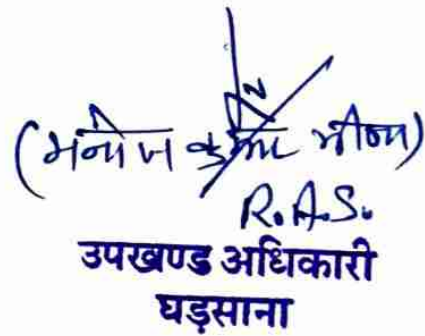 (मनोज कुमार मीणा)
R.A.S.
उपखण्ड अधिकारी
घड़साना